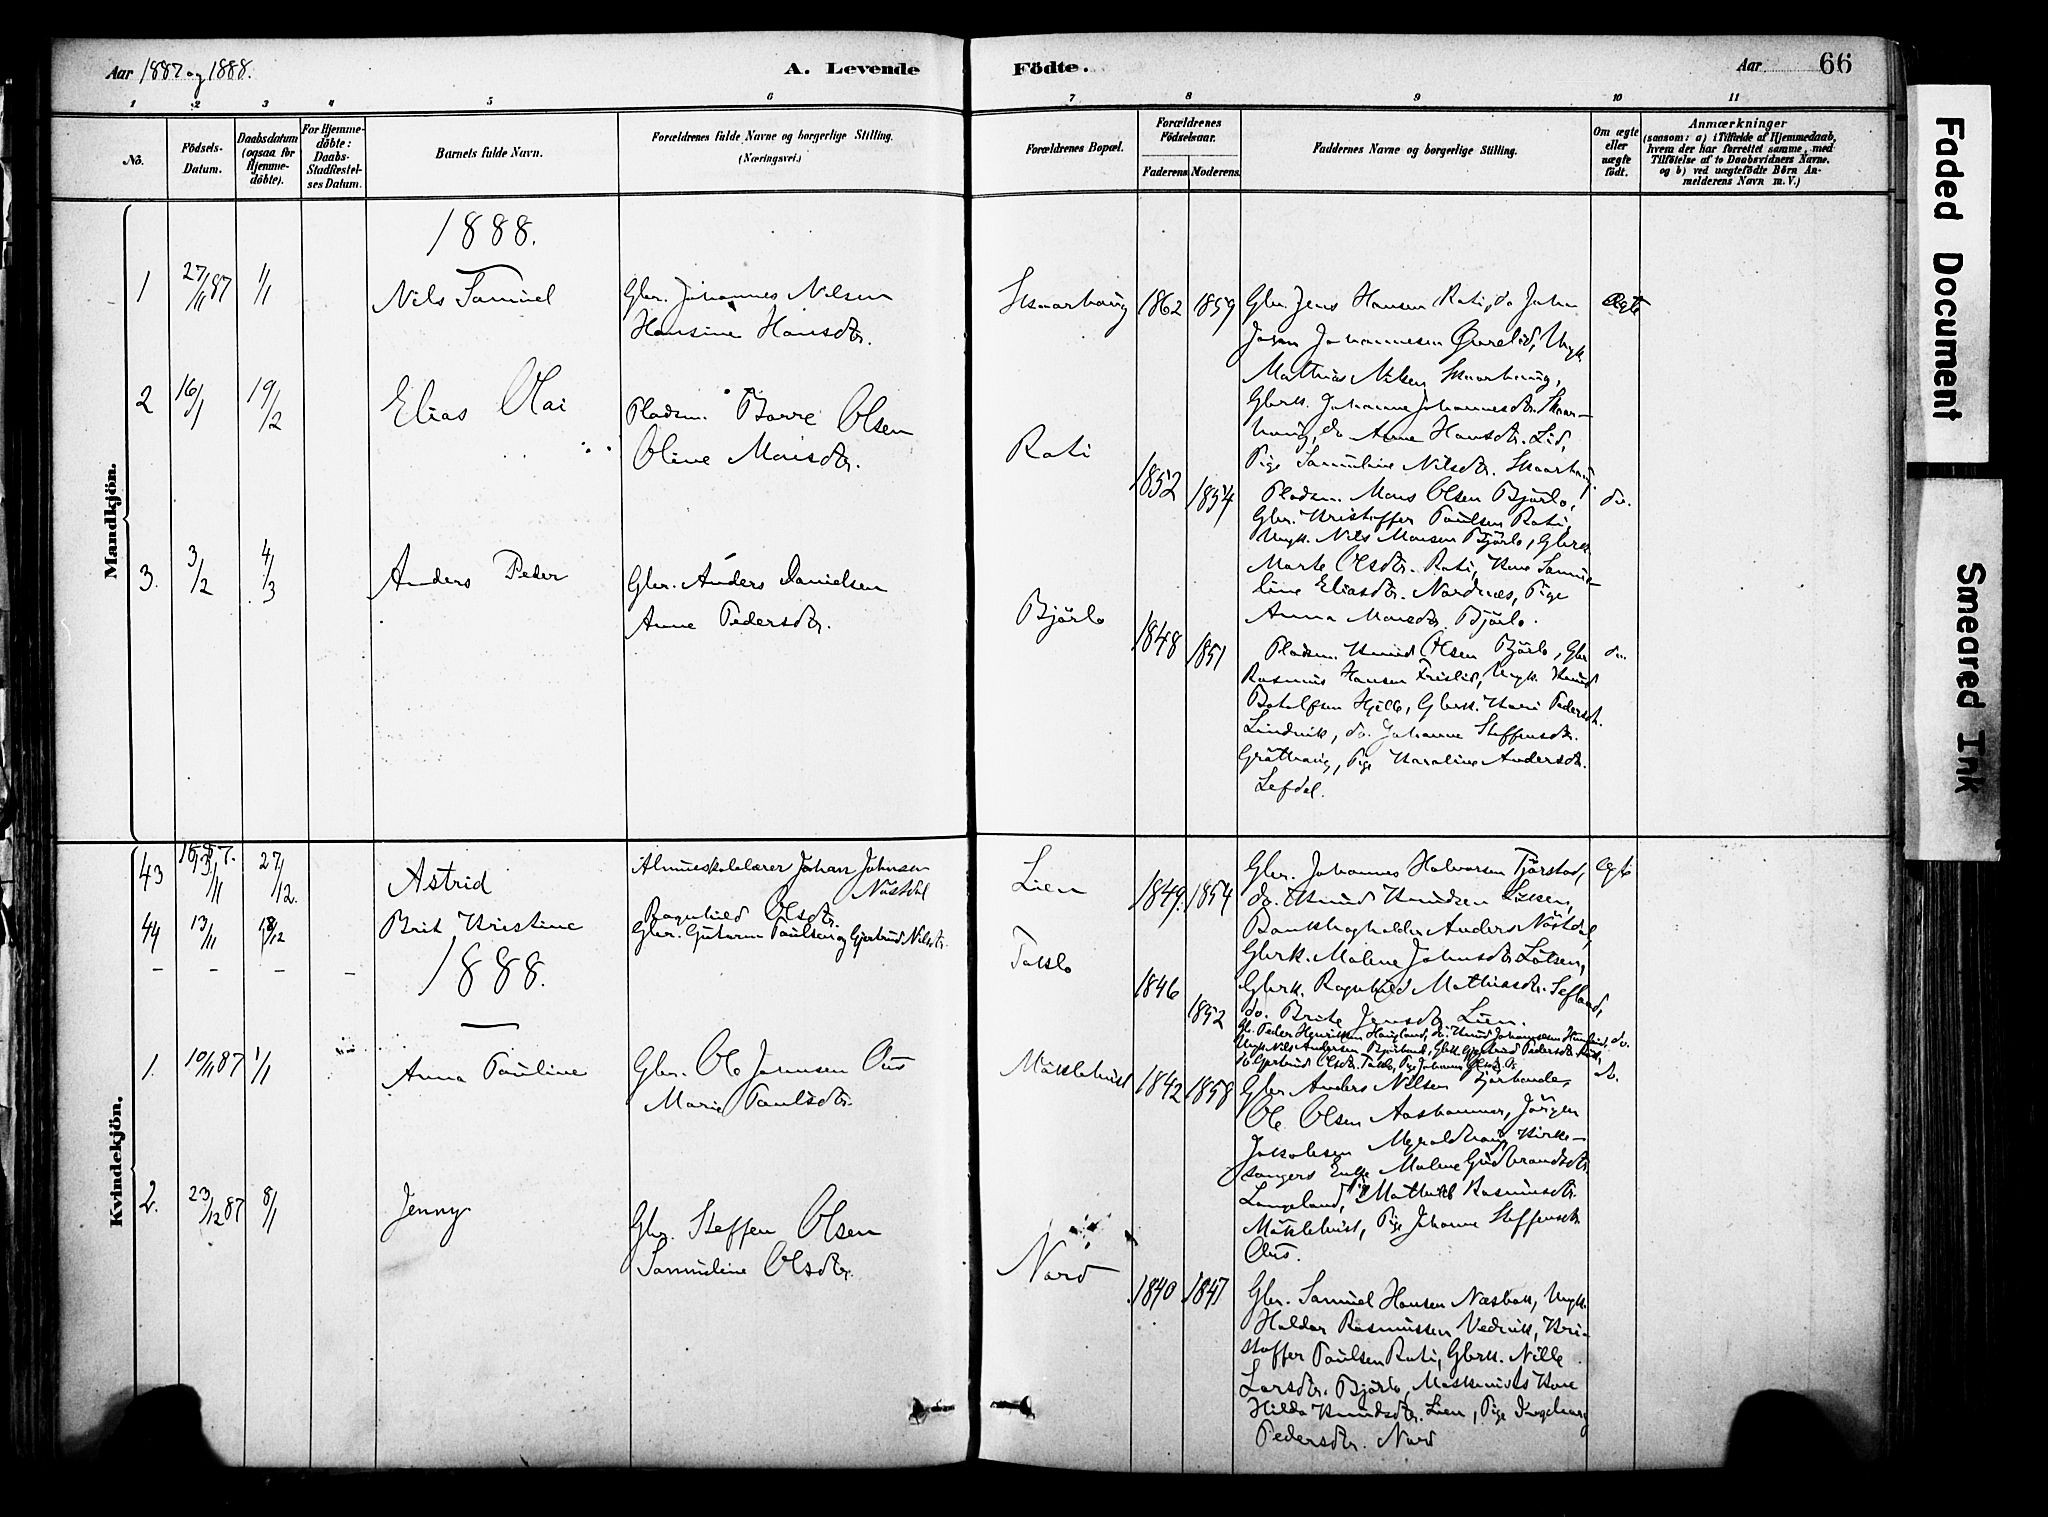 Aar 1887 og 1888.
A. Levende
Födte.
Aar
66
1 2 3 4 5 6 7 8 9 10 11
No.
Födsels-Datum.
Daabsdatum (ogsaa for Hjemme-döbte).
For Hjemme-döbte: Daabs-Stadfæstel-ses Datum.
Barnets fulde Navn.
Forældrenes fulde Navne og borgerlige Stilling.
(Næringsvei.)
Forældrenes Bopæl.
Forældrenes Födselsaar.
Faderens Moderens
Faddernes Navne og borgerlige Stilling.
Om ægte eller uægte födt.
Anmærkninger
(saasom: a) i Tilfælde af Hjemmedaab,
hvem der har forrettet samme, med
Tilföielse af to Daabsvidners Navne.
og b) ved uægtefödte Börn An-
melderens Navn m. V.)
Mandkjön.
1888.
1 27/11 87 1/1 Nils Samuel Gbr. Johannes Nilsen
Hansine Hansdtr.
Skaarhaug 1862 1859 Gbr. Jens Hansen Rati, do Johan
Johan Johannesen Qvrelid, Ungk.
Mathias Nilsen Skaarhaug,
Gbrk. Johanne Johannesdtr. Skaar-
haug, do Anne Hansdtr. Lid,
Pige Samueline Nilsdtr. Skaarhaug.
Ægte
2 16/1 19/2 Elias Olai Pladsm. Børre Olsen
Oline Monsdtr.
Rati 1852 1854 Pladsm. Mons Olsen Bjørlo,
Gbr. Kristoffer Paulsen Rati,
Ungk. Nils Monsen Bjørlo, Gbrk.
Marte Olsdtr. Rati, Kone Samue-
line Eliasdtr. Nordnæs, Pige
Anna Monsdtr. Bjørlo.
do.
3. 3/2 4/3 Anders Peder Gbr. Anders Danielsen
Anne Pedersdtr.
Bjørlo 1848 1851 Pladsm. Knud Olsen Bjørlo, Gbr
Rasmus Hansen Frislid, Ungk. Knud
Botolfsen Hjelle, Gbrk. Kari Pedersdt.
Lindvik, do. Johanne Steffensdtr.
Grøthaug, Pige Karoline Andersdtr.
Lefdal.
do.
Kvindekjön.
43 13/11 27/12. Astrid Almueskolelærer Johan Johnsen
Nøstdal
Ragnhild Olsdtr.
Lien 1849. 1854 Gbr. Johannes Halvorsen Tjørstad,
do. Knud Knudsen Løtsen,
Bankbogholder Anders Nøstdal,
Gbrk. Malene Johnsdtr Løtsen,
Gbrk. Ragnhild Mathiasdtr. Sefland,
do. Brite Jensdtr Lien.
Ægte
44 13/11 Brit Kristine Gbr. Gutorm Paulsen og Gjertrud Nilsdtr.
Taklo 1846 1852
Gbr. Peder Henriksen Haugland, do. Knud Johannesen
Ungk. Nils Andersen
do Gjertrud Olsdtr. Taklo, Pige Johanne Olsdtr.
do.
1888.
1. 10/11 87 1/1 Anna Pauline Gbr. Ole Johnsen Aus
Marie Paulsdtr.
Maklehust 1842 1858 Gbr Anders Nilsen
Ole Olsen Aashammer, Jørgen
Jakobsen Myroldhaug, Kirke-
sangers Enke Malene Gudbrandsdtr
Langeland, Pige Mathilde Rasmusdtr.
Maklehust, Pige Johanne Steffensdtr
Aus.
do.
2. 23/12 87 8/1 Jenny Gbr. Steffen Olsen
Samueline Olsdtr.
Nord 1840 1847 Gbr. Samuel Hansen Næsbak, Ungk.
Haldor Rasmussen Vedvik, Kri-
stoffer Paulsen Rati, Gbrk. Nille
Larsdtr. Bjørlo, Kone
Hilda Knudsdtr. Lien, Pige Ingeborg
Pedersdtr. Nord
Faded Document
Smeared Ink